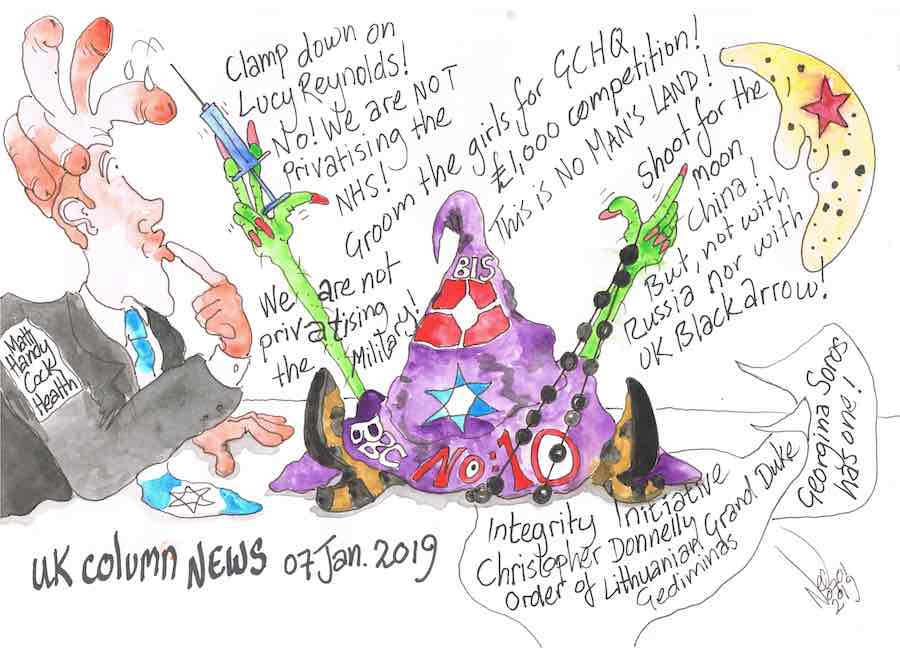 Clamp down on
Lucy Reynolds!
No! We are NOT
Privatising the
NHS!
Groom the girls for GCHQ
£1,000 competition!
This is No Man's LAND!
Shoot for the
moon
China!
But, not with
Russia nor with
UK Black arrow!
We are not
privatising
the Military!
Matt
Handy
Cock
Health
BIS
BBC
No:10
Georgina Soros
has one!
Integrity Initiative
Christopher Donnelly
Order of Lithuanian Grand Duke
Gediminas
UK Column NEWS 07 Jan. 2019
2019